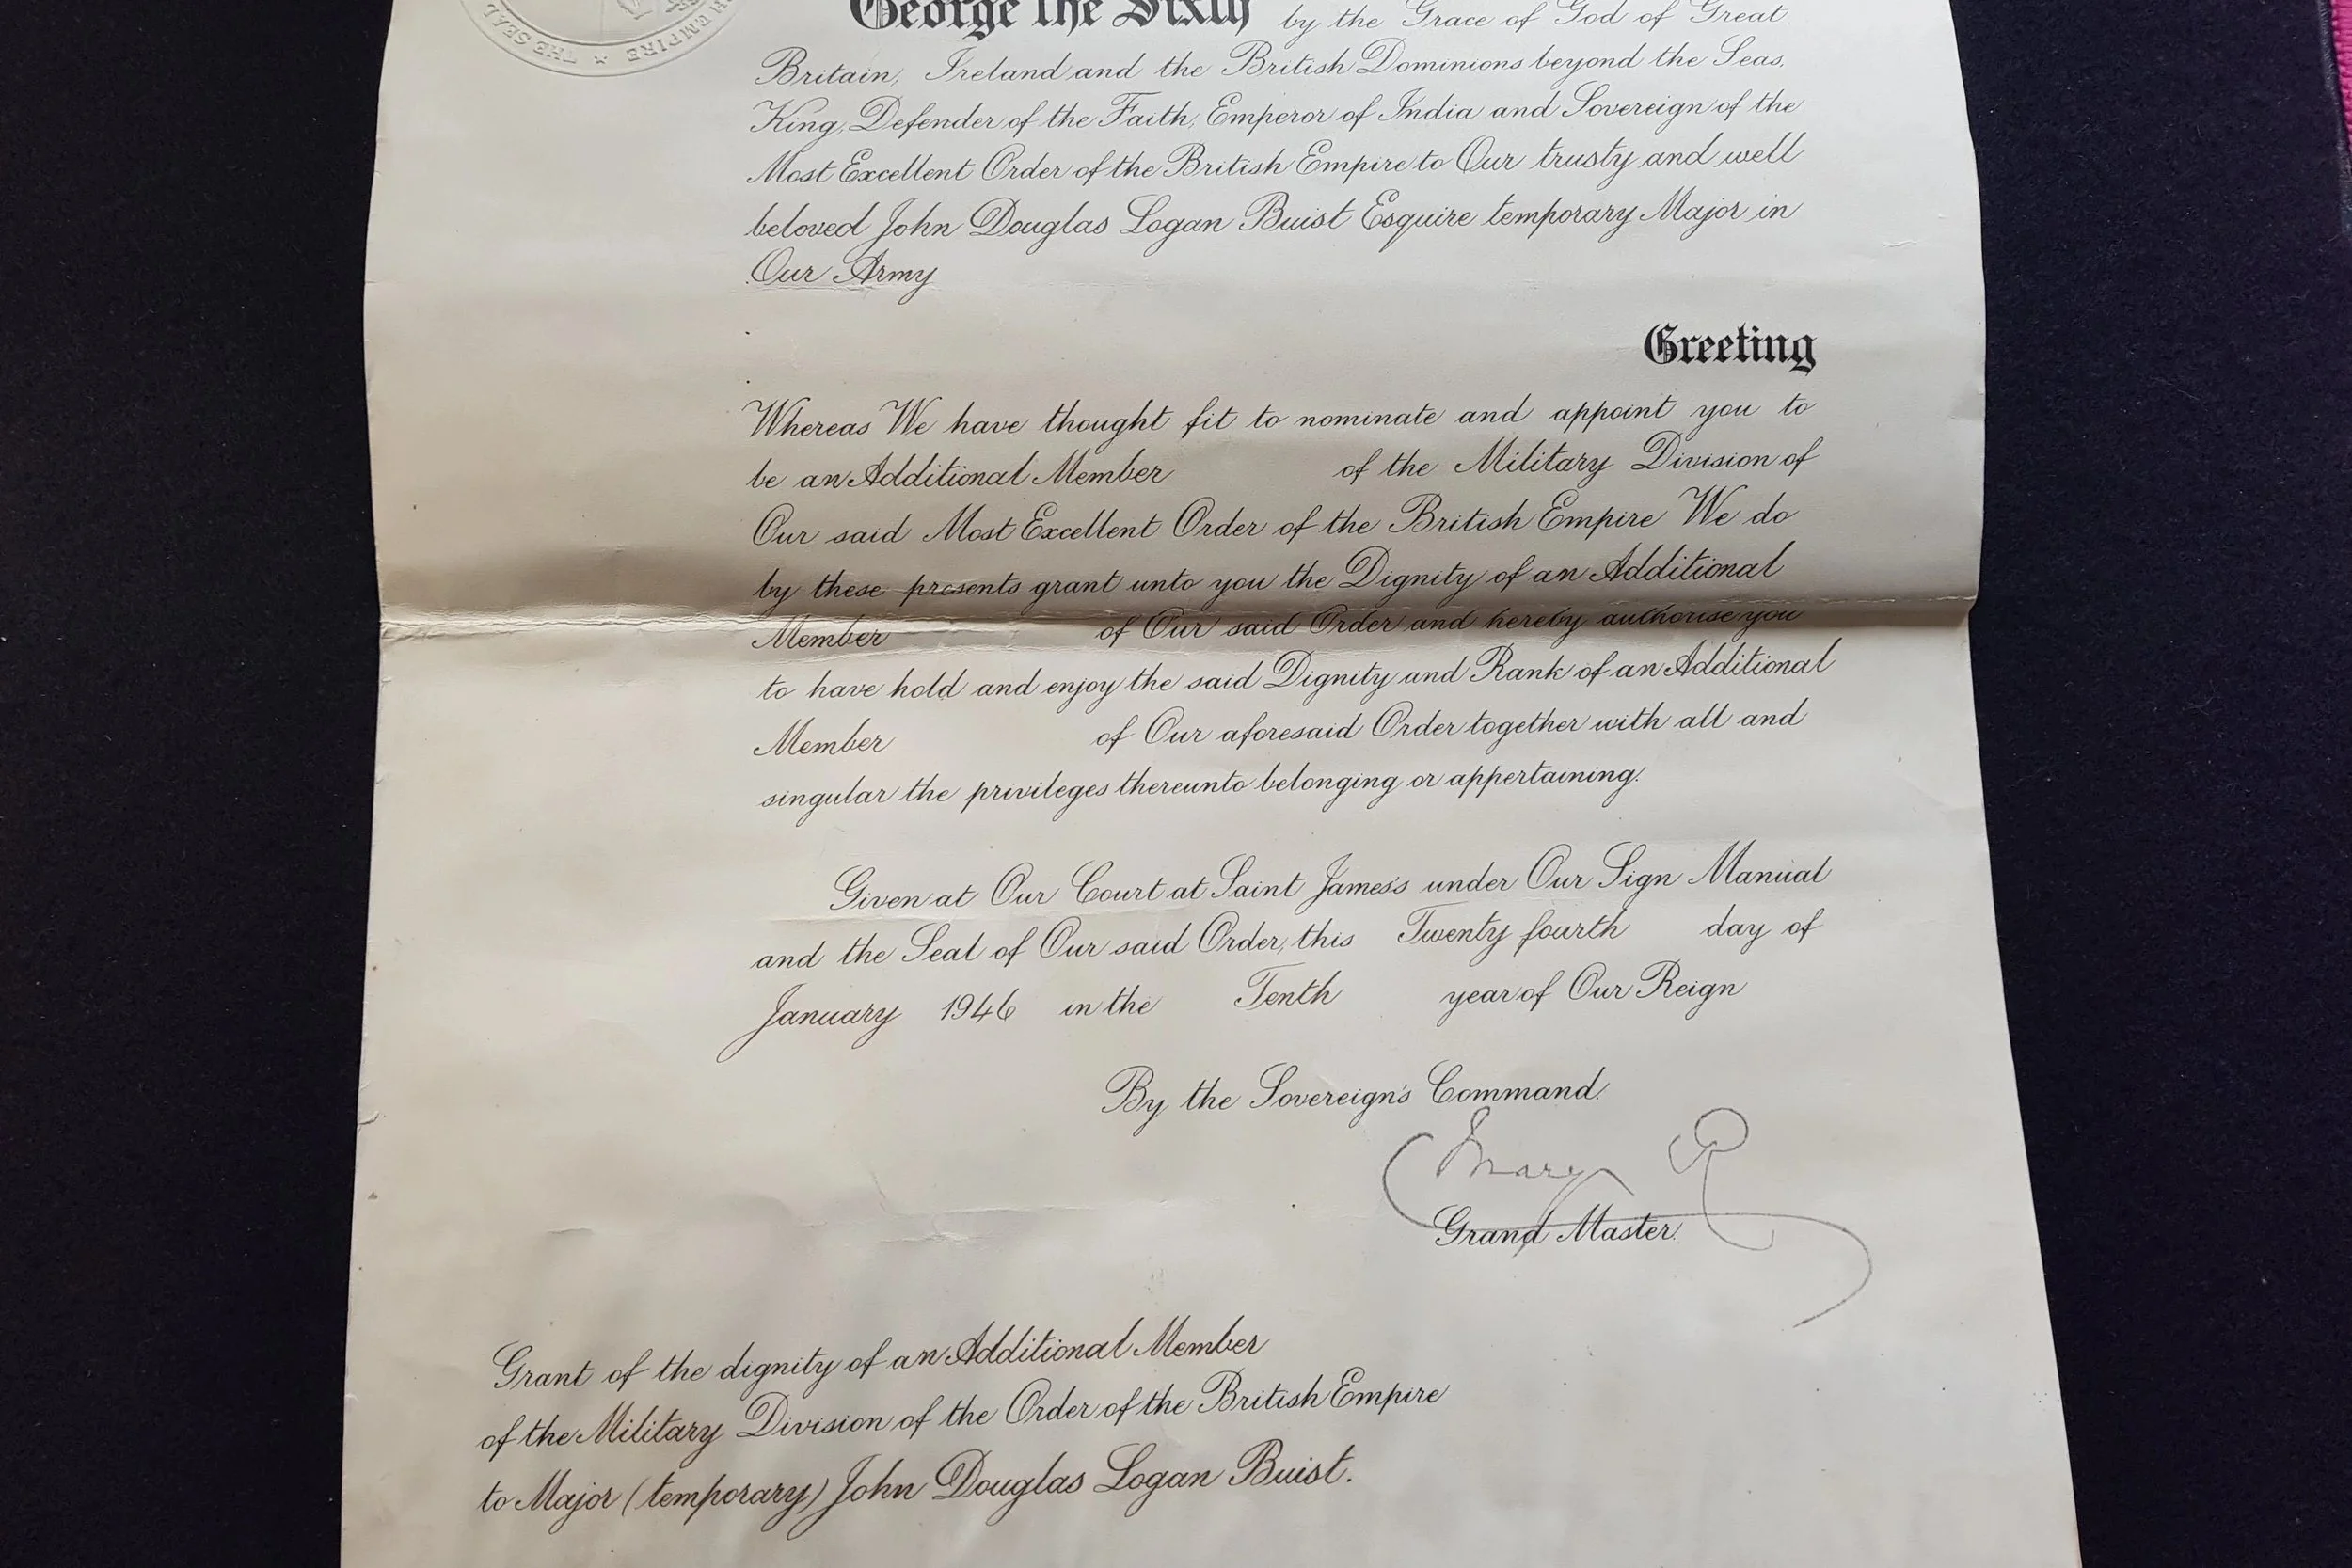 THE SEAL
EMPIRE
George the Sixth by the Grace of God of Great
Britain, Ireland and the British Dominions beyond the Seas,
King, Defender of the Faith, Emperor of India and Sovereign of the
Most Excellent Order of the British Empire to Our trusty and well
beloved John Douglas Logan Buist Esquire temporary Major in
Our Army
Greeting
Whereas We have thought fit to nominate and appoint you to
be an Additional Member of the Military Division of
Our said Most Excellent Order of the British Empire We do
by these presents grant unto you the Dignity of an Additional
Member of Our said Order and hereby authorise you
to have hold and enjoy the said Dignity and Rank of an Additional
Member of Our aforesaid Order together with all and
singular the privileges thereunto belonging or appertaining.
Given at Our Court at Saint James's under Our Sign Manual
and the Seal of Our said Order, this Twenty fourth day of
January 1946 in the Tenth year of Our Reign
By the Sovereign's Command.
Mary R
Grand Master.
Grant of the dignity of an Additional Member
of the Military Division of the Order of the British Empire
to Major (temporary) John Douglas Logan Buist.